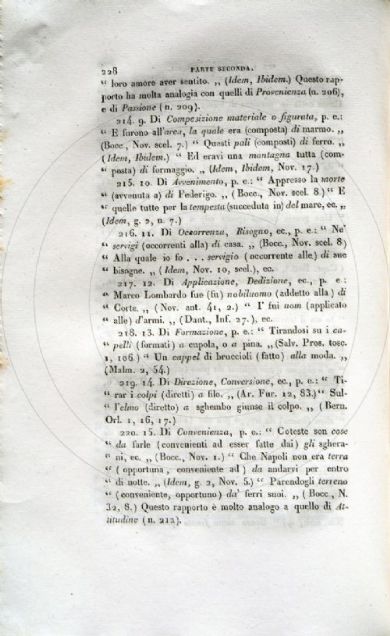 228 PARTE SECONDA.
“ loro amore aver sentito. „ (Idem, Ibidem.) Questo rap-
porto ha molta analogia con quelli di Provenienza (n. 206),
e di Passione (n. 209).
214. 9. Di Composizione materiale o figurata, p. e.:
“ E furono all'arca, la quale era (composta) di marmo. „
(Bocc., Nov. scel. 7.) “ Questi pali (composti) di ferro. „
(Idem, Ibidem.) “ Ed eravi una montagna tutta (com-
posta) di formaggio. „ (Idem, Ibidem, Nov. 17.)
215. 10. Di Avvenimento, p. e.: “ Appresso la morte
(avvenuta a) di Federigo. „ (Bocc., Nov. scel. 8.) “ E
“ quelle tutte per la tempesta (succeduta in) del mare, ec. „
(Idem, g. 2, n. 7.)
216. 11. Di Occorrenza, Bisogno, ec., p. e.: “ Ne'
“ servigi (occorrenti alla) di casa. „ (Bocc., Nov. scel. 8)
“ Alla quale io fo . . . servigio (occorrente alle) di sue
“ bisogne. „ (Idem, Nov. 10, scel.), ec.
217. 12. Di Applicazione, Dedizione, ec., p. e.:
“ Marco Lombardo fue (fu) nobiluomo (addetto alla) di
“ Corte. „ (Nov. ant. 41, 2.) “ I' fui uom (applicato
“ alle) d'armi. „ (Dant., Inf. 27.), ec.
218. 13. Di Formazione, p. e.: “ Tirandosi su i ca-
“ pelli (formati) a cupola, o a pina. „ (Salv. Pros. tosc.
1, 106.) “ Un cappel di broccioli (fatto) alla moda. „
(Malm. 2, 54.)
219. 14. Di Direzione, Conversione, ec., p. e.: “ Ti-
“ rar i colpi (diretti) a filo. „ (Ar. Fur. 12, 83.) “ Sul-
“ l'elmo (diretto) a sghembo giunse il colpo. „ (Bern.
Orl. 1, 16, 17.)
220. 15. Di Convenienza, p. e.: “ Coteste son cose
“ da farle (convenienti ad esser fatte dai) gli sghera-
“ ni, ec. „ (Bocc., Nov. 1.) “ Che Napoli non era terra
“ (opportuna, conveniente ad) da andarvi per entro
“ di notte. „ (Idem, g. 2, Nov. 5.) “ Parendogli terreno
“ (conveniente, opportuno) da' ferri suoi. „ (Bocc., N.
32, 8.) Questo rapporto è molto analogo a quello di At-
titudine (n. 212).